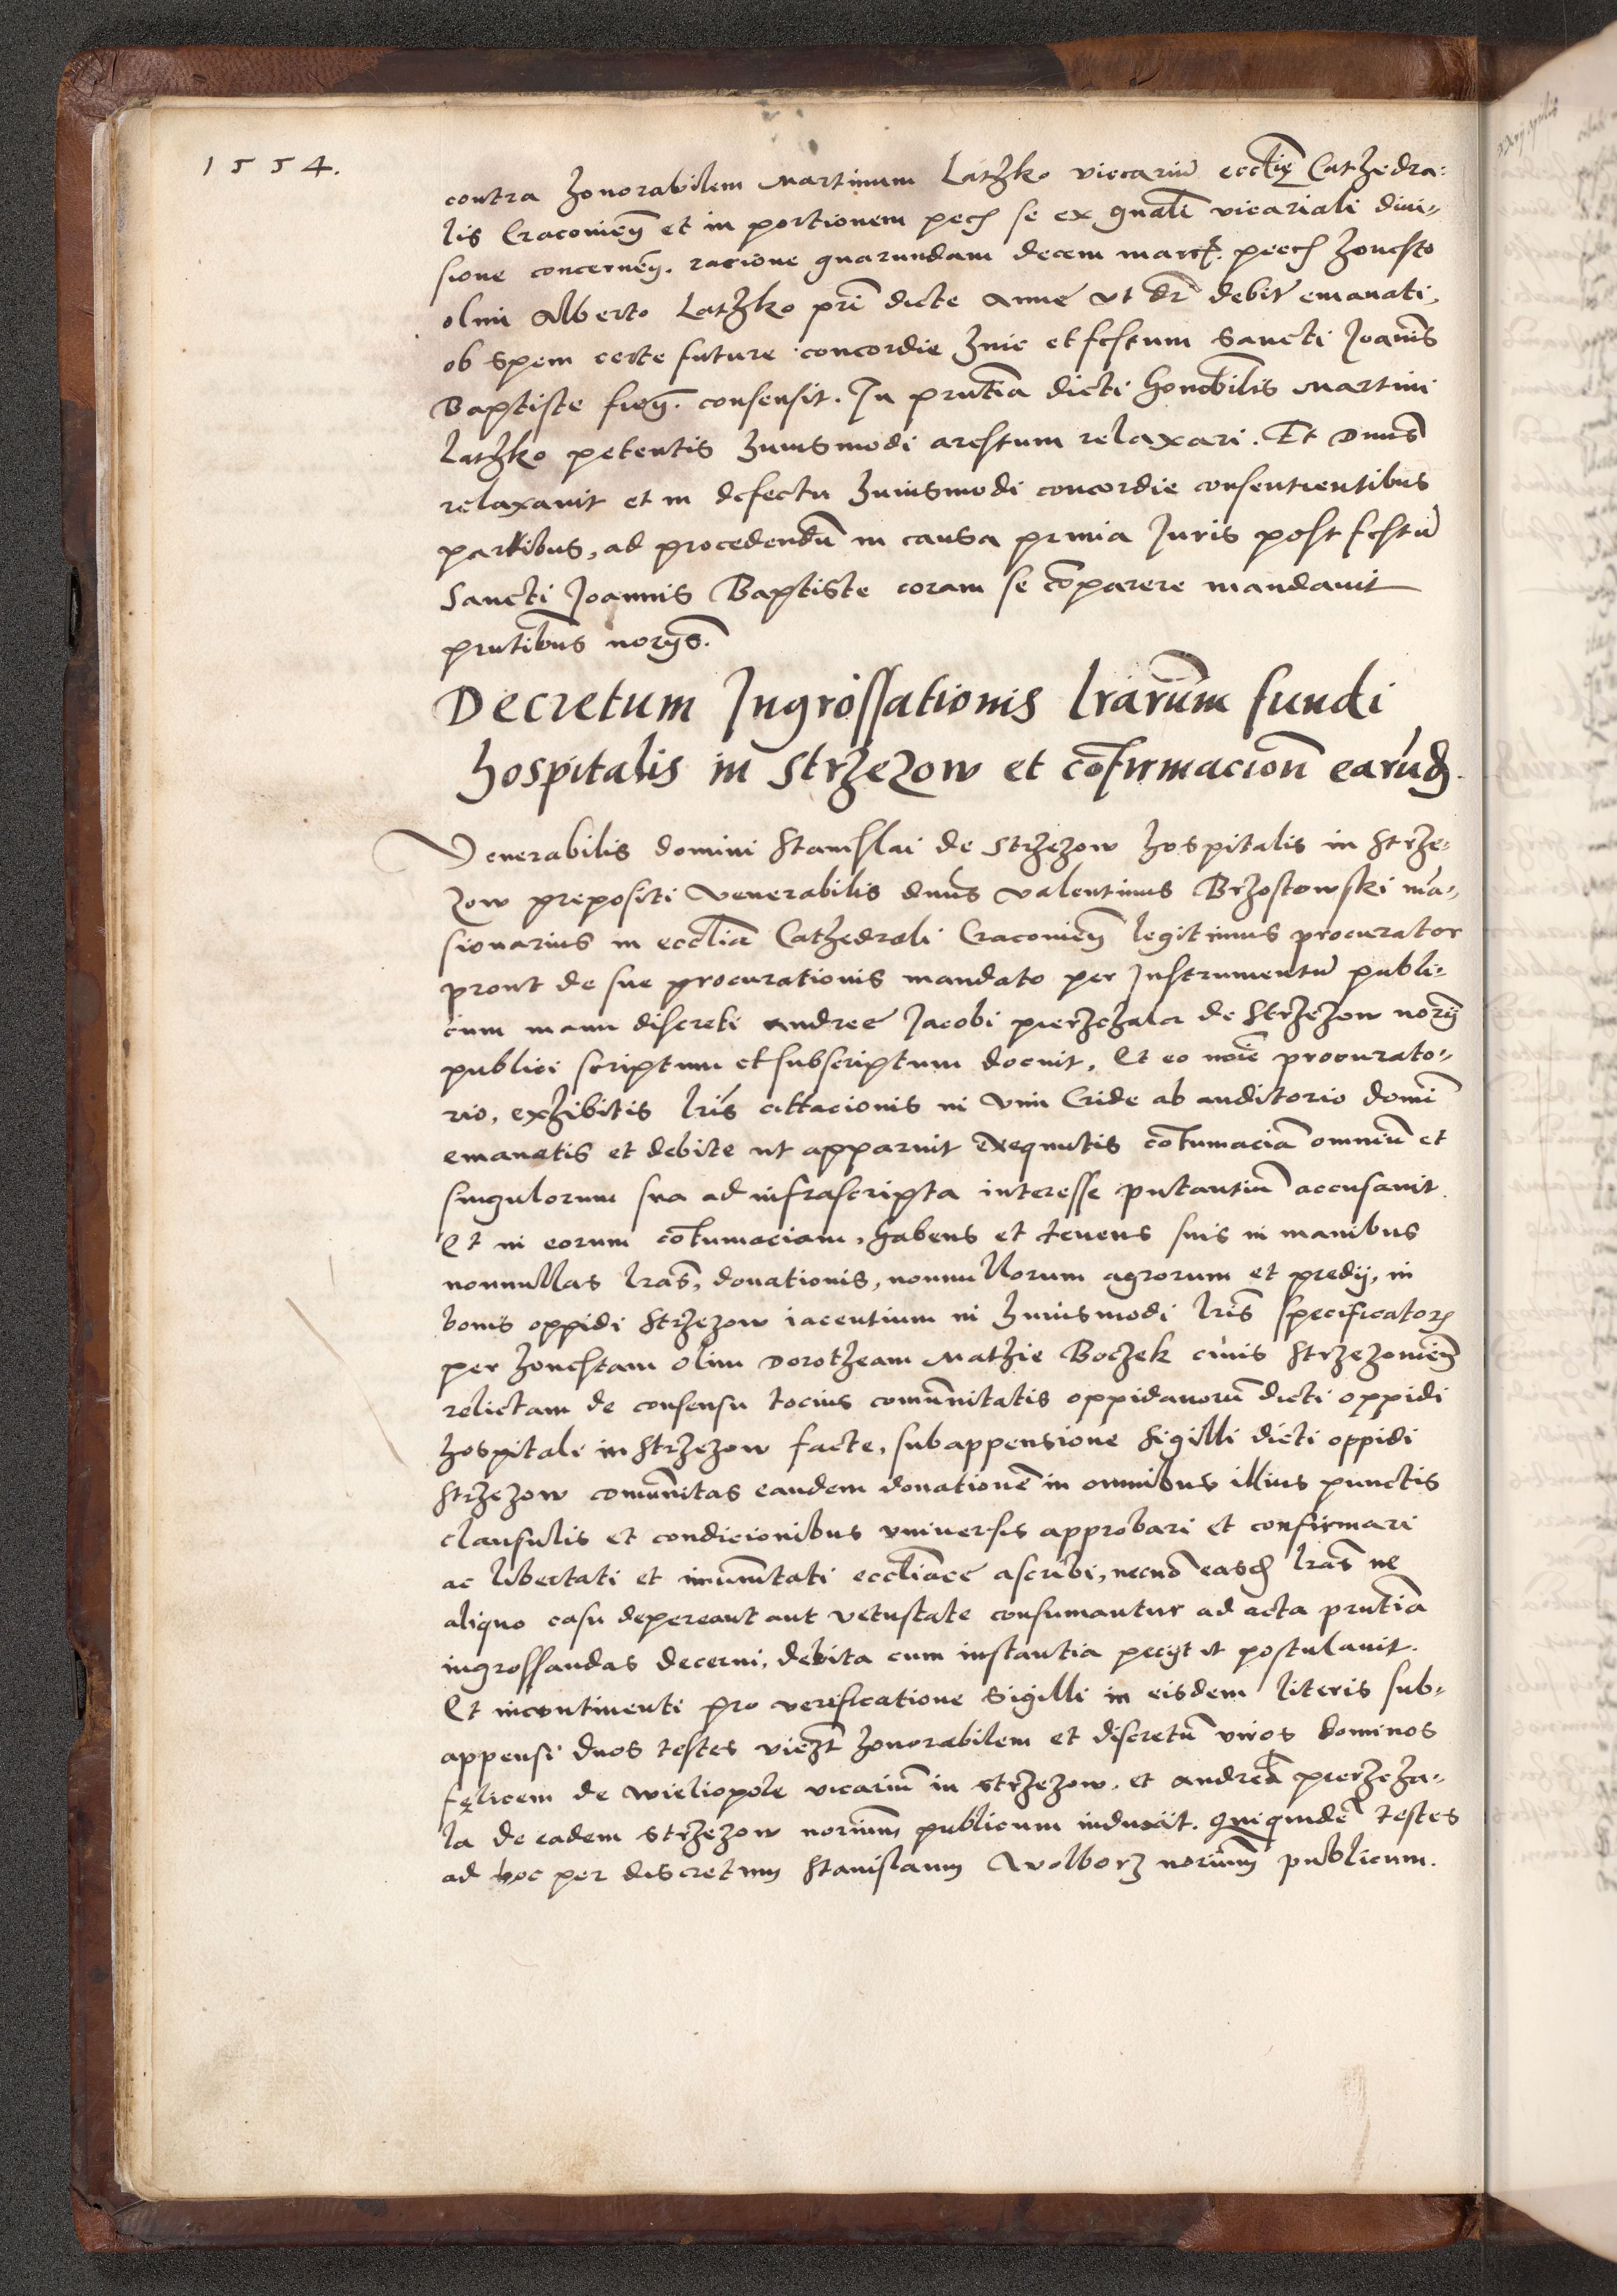 1554.
contra honorabilem Martinum Lathko viccariū ecctię Cathedra:
lis Craconien̄ et in portionem pecł se ex gnalī vicariali diui„
sione concernen̄. racione quarundam decem marcł. peccł honesto
olim Alberto Lathko prī dicte Anne vt dr̄ debit̄ emanati,
ob spem certe future concordie hinc et festum Sancti Joannis
Baptiste fien̄. consensit. In pn̄tia dicti honobilis Martini
Lathko petentis huiusmodi arestum relaxari. Et Dnus̄
relaxauit et in defectu huiusmodi concordie consentientibus
partibus, ad procedendū in causa prmia Juris post festū
Sancti Joannis Baptiste coram se cōparere mandauit
pn̄tibus norijs.
Decretum Ingrossationis lrārum fundi
hospitalis in Strzezow et cōfirmacion̄ earūd.
Venerabilis domini Stanislai de Strzezow hospitalis in Strze„
zow prepositi venerabilis dnus̄ Valentinus Brzostowski mā„
sionarius in eccliā Cathedrali Craconien̄ legitimus procurator
prout de sue procurationis mandato per Instrumentū publi„
cum manu discreti Andree Jacobi pierzchala de Strzezow norij
publici scriptum et subscriptum docuit. Et eo noīe procurato„
rio, exhibitis lrīs cittacionis in vim Cride ab auditorio domī
emanatis et debite ut apparuit exequutis cōtumaciā omniū et
singulorum sua ad infrascripta interesse putantiū accusauit.
Et in eorum cōtumaciam, habens et tenens suis in manibus
nonnullas lrās, donationis, nonnullorum agrorum et predij, in
bonis oppidi Strzezow iacentium in huiusmodi lrīs specificatorꝝ
per honestam olim Dorotheam Mathie Boczek ciuis Strzezonien̄
relictam de consensu tocius comūnitatis oppidanorū dicti oppidi
hospitali in Strzezow facte, subappensione Sigilli dicti oppidi
Strzezow comūnitas eandem donationē in omnibus illius punctis
clausulis et condicionibus vniuersis approbari et confirmari
ac libertati et imūnitati ecclīace ascribi, necnō easd lrās ne
aliquo casu depereant aut vetustate consumantur ad acta pn̄tia
ingrossandas decerni, debita cum instantia pecijt et postulauit.
Et incontinenti pro verificatione Sigilli in eisdem literis sub„
appensi duos testes viezt honorabilem et discretū viros dominos
Fęlicem de Wieliopole vicariū in Strzezow, et Andreā pierzcha„
la de eadem Strzezow noriūm publicum induxit. Qui quidē testes
ad hoc per discretum Stanislaum Wolborz noriūm publicum.